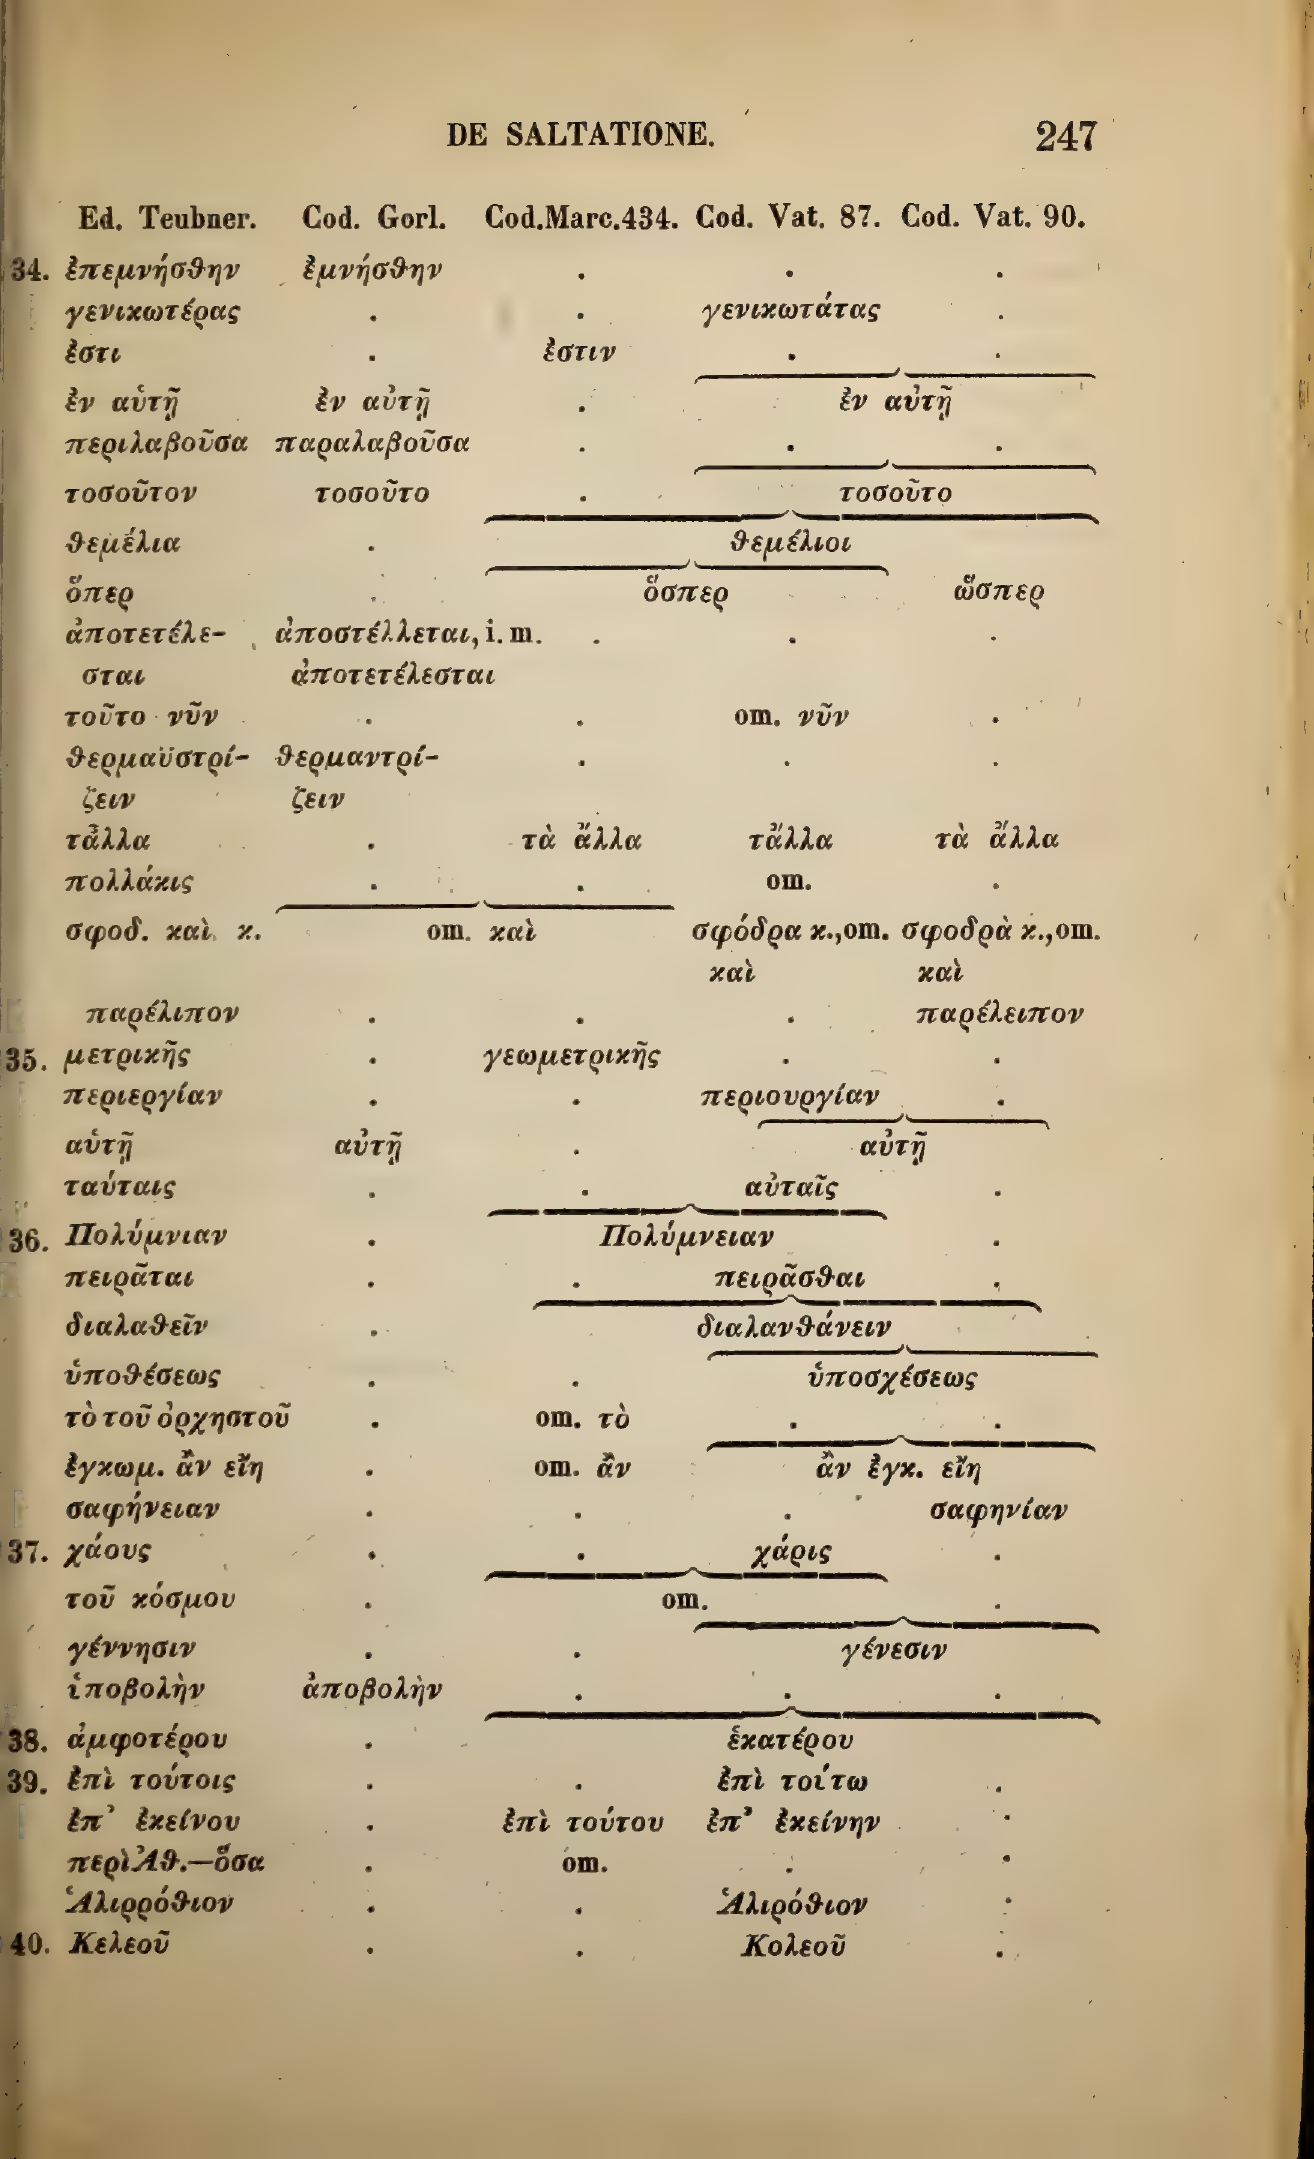 DE SALTATIONE. 247
Ed. Teubner. Cod. Gorl. Cod.Marc.434. Cod. Vat. 87. Cod. Vat. 90.
34. ἐπεμνήσθην ἐμνήσθην . . .
γενικωτέρας . . γενικωτάτας .
ἐστι . ἐστιν . .
ἐν αὑτῇ ἐν αὐτῇ . ἐν αὐτῇ
περιλαβοῦσα παραλαβοῦσα . . .
τοσοῦτον τοσοῦτο . τοσοῦτο
θεμέλια . θεμέλιοι
ὅπερ . ὅσπερ ὥσπερ
ἀποτετέλε- ἀποστέλλεται, i. m. . . .
σται ἀποτετέλεσται
τοῦτο νῦν . . om. νῦν .
θερμαϋστρί- θερμαντρί- . . .
ζειν ζειν
τἆλλα . τὰ ἄλλα τἄλλα τὰ ἄλλα
πολλάκις . . om. .
σφοδ. καὶ κ. om. καὶ σφόδρα κ.,om. σφοδρὰ κ.,om.
καὶ καὶ
παρέλιπον . . . παρέλειπον
35. μετρικῆς . γεωμετρικῆς . .
περιεργίαν . . περιουργίαν .
αὑτῇ αὐτῇ . αὐτῇ
ταύταις . . αὐταῖς .
36. Πολύμνιαν . Πολύμνειαν .
πειρᾶται . . πειρᾶσθαι .
διαλαθεῖν . διαλανθάνειν
ὑποθέσεως . . ὑποσχέσεως
τὸ τοῦ ὀρχηστοῦ . om. τὸ . .
ἐγκωμ. ἂν εἴη . om. ἂν ἂν ἐγκ. εἴη
σαφήνειαν . . . σαφηνίαν
37. χάους . . χάρις .
τοῦ κόσμου . om. .
γέννησιν . . γένεσιν
ὑποβολὴν ἀποβολὴν . . .
38. ἀμφοτέρου . ἑκατέρου
39. ἐπὶ τούτοις . . ἐπὶ τούτω .
ἐπ’ ἐκείνου . ἐπὶ τούτου ἐπ’ ἐκείνην .
περὶ Ἀθ.—ὅσα . om. . .
Ἁλιρρόθιον . . Ἁλιρόθιον .
40. Κελεοῦ . . Κολεοῦ .